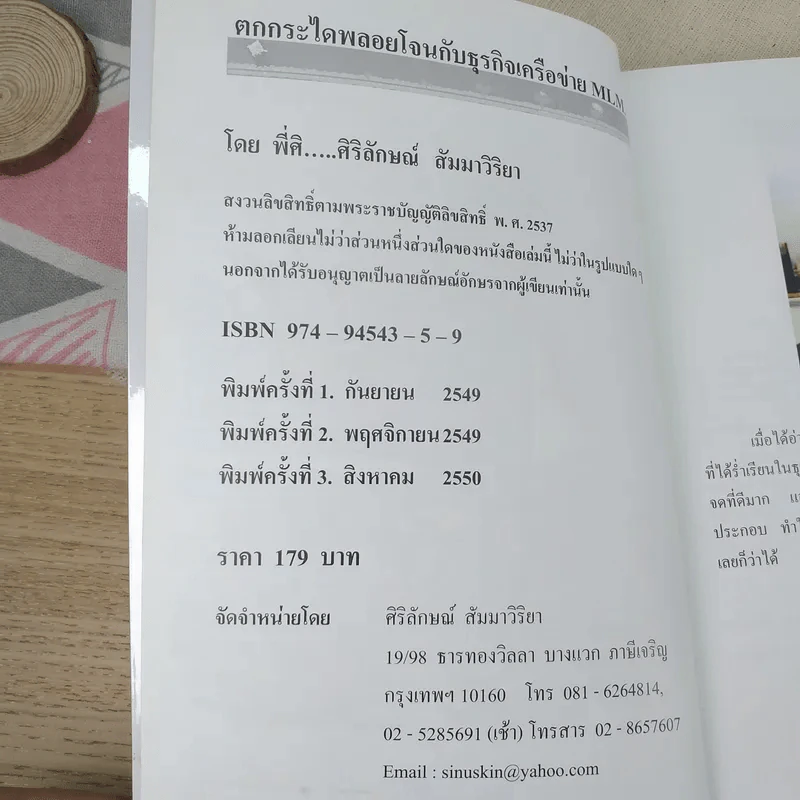 ตกกระไดพลอยโจนกับธุรกิจเครือข่าย MLM
โดย พี่ศิ.....ศิริลักษณ์ สัมมาวิริยา
สงวนลิขสิทธิ์ตามพระราชบัญญัติลิขสิทธิ์ พ. ศ. 2537
ห้ามลอกเลียนไม่ว่าส่วนหนึ่งส่วนใดของหนังสือเล่มนี้ ไม่ว่าในรูปแบบใด ๆ
นอกจากได้รับอนุญาตเป็นลายลักษณ์อักษรจากผู้เขียนเท่านั้น
ISBN 974 – 94543 – 5 – 9
พิมพ์ครั้งที่ 1. กันยายน 2549
พิมพ์ครั้งที่ 2. พฤศจิกายน 2549
พิมพ์ครั้งที่ 3. สิงหาคม 2550
ราคา 179 บาท
จัดจำหน่ายโดย ศิริลักษณ์ สัมมาวิริยา
19/98 ธารทองวิลลา บางแวก ภาษีเจริญ
กรุงเทพฯ 10160 โทร 081 - 6264814,
02 - 5285691 (เช้า) โทรสาร 02 - 8657607
Email : sinuskin@yahoo.com
เมื่อได้อ่า
ที่ได้ร่ำเรียนในธุ
จดที่ดีมาก
ประกอบ ทำใ
เลยก็ว่าได้